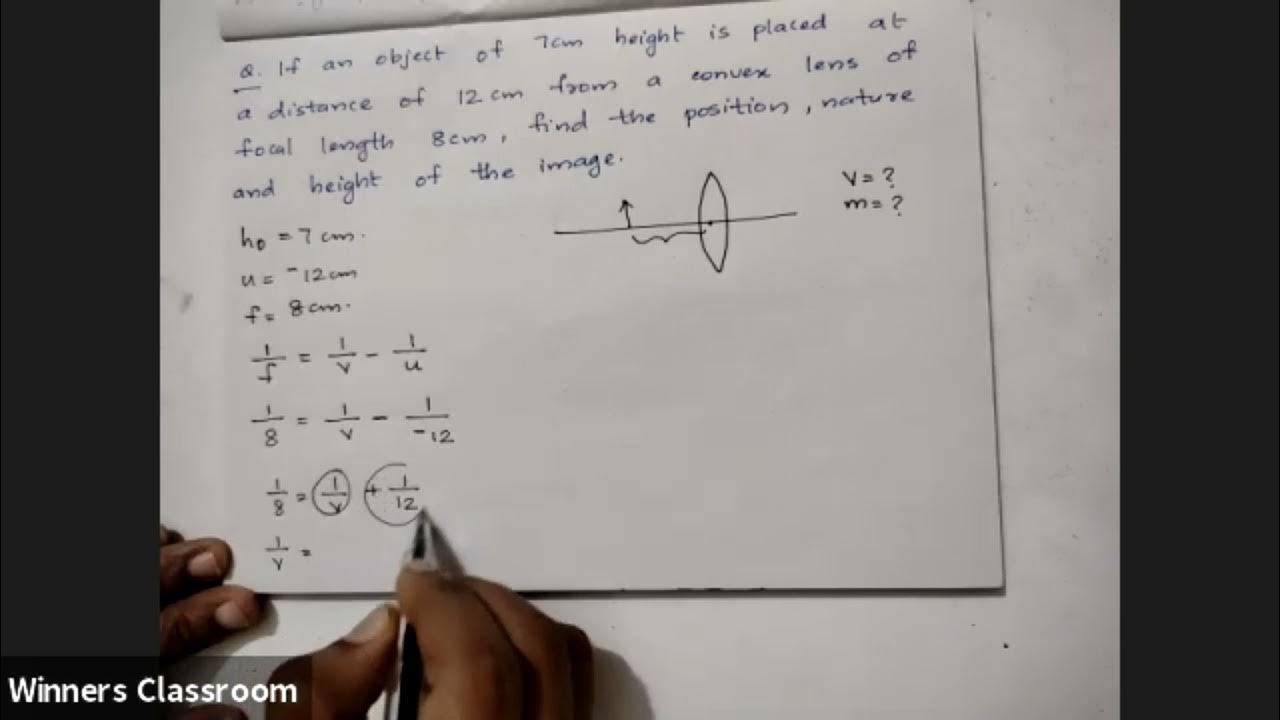 Q. If an object of 7cm height is placed at
a distance of 12 cm from a convex lens of
focal length 8cm, find the position, nature
and height of the image.
v = ?
m = ?
h₀ = 7 cm.
u = -12cm
f = 8cm.
1/f = 1/v - 1/u
1/8 = 1/v - 1/-12
1/8 = 1/v + 1/12
1/v =
Winners Classroom